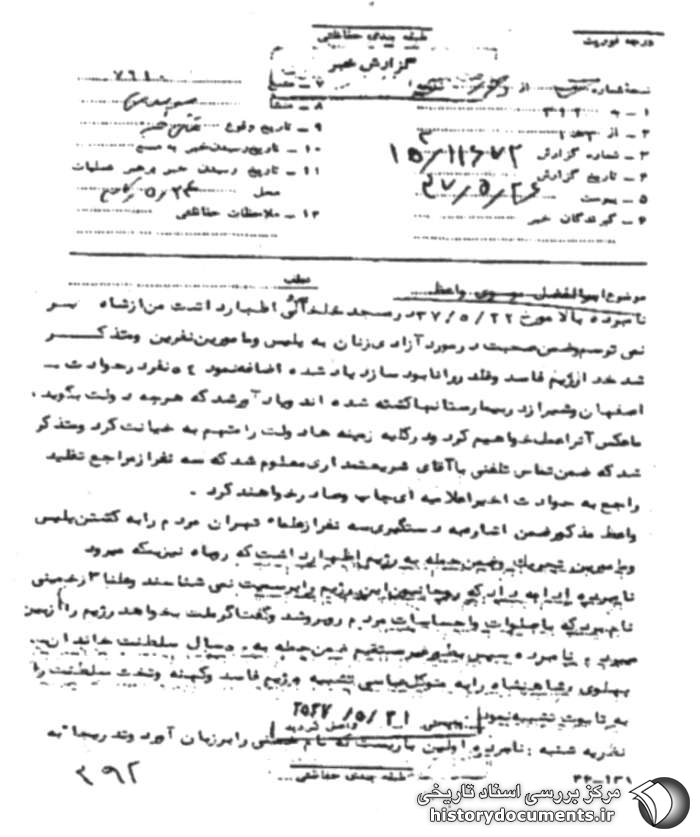 درجه فوریت
طبقه بندی حفاظتی
گزارش خبر
نسخه شماره از
۱ – به ۳۱۲
۲ – از
۳ – شماره گزارش ۱۵/۱۱۶۷۲
۴ – تاریخ گزارش ۳۷/۵/۲۶
۵ – پیوست
۶ – گیرندگان خبر
۷ – منبع ۷۶۱۰
۸ – منشأ
۹ – تاریخ وقوع
۱۰ – تاریخ رسیدن خبر به منبع
۱۱ – تاریخ رسیدن خبر برهبر عملیات
محل ۵/۲۴
۱۲ – ملاحظات حفاظتی
مطلب
موضوع ابوالفضل موسوی واعظ
نامبرده بالا مورخ ۳۷/۵/۲۲ در مسجد اظهار داشت من از شاه
نمی ترسم وضمن صحبت در مورد آزادی زنان به پلیس ومامورین نفرین ومتذکر
شد خدا رژیم فاسد وقلدر را نابود سازد یاد شده اضافه نمود نفر در حوادث
اصفهان وشیراز در بیمارستانها کشته شده اند ویاد آور شد که هرچه دولت بگوید،
ما عکس آنرا عمل خواهیم کرد ودر کلیه زمینه ها دولت را متهم به خیانت کرد ومتذکر
شد که ضمن تماس تلفنی با آقای شریعتمداری معلوم شد که سه نفر از مراجع تقلید
راجع به حوادث اخیر اعلامیه ای چاپ وصادر خواهند کرد .
واعظ مذکور ضمن اشاره به دستگیری سه نفر از علماء تهران مردم را به کشتن پلیس
ومامورین تحریک وضمن حمله به رژیم اظهار داشت که روباه نیز بیشه میرود
نامبرده ادامه داد که روحانیون این رژیم را برسمیت نمی شناسند وعلنا از خمینی
نام برد که با صلوات واحساسات مردم روبرو شد وگفت اگر ملت بخواهد رژیم را از بین
میبرد، نامبرده سپس بطور غیر مستقیم ضمن حمله به سال سلطنت خاندان
پهلوی شاهنشاه را به متوکل عباسی تشبیه ورژیم فاسد وکهنه وتخت سلطنت را
به تابوت تشبیه نمود. ۲۵۳۷/۵/۲۱
نظریه شنبه : نامبرده اولین باریست که نام خمینی را بر زبان آورد وتدریجا "به
۲۲–۱۳۱
طبقه بندی حفاظتی
۳۹۲
مرکز بررسی اسناد تاریخی
historydocuments.ir